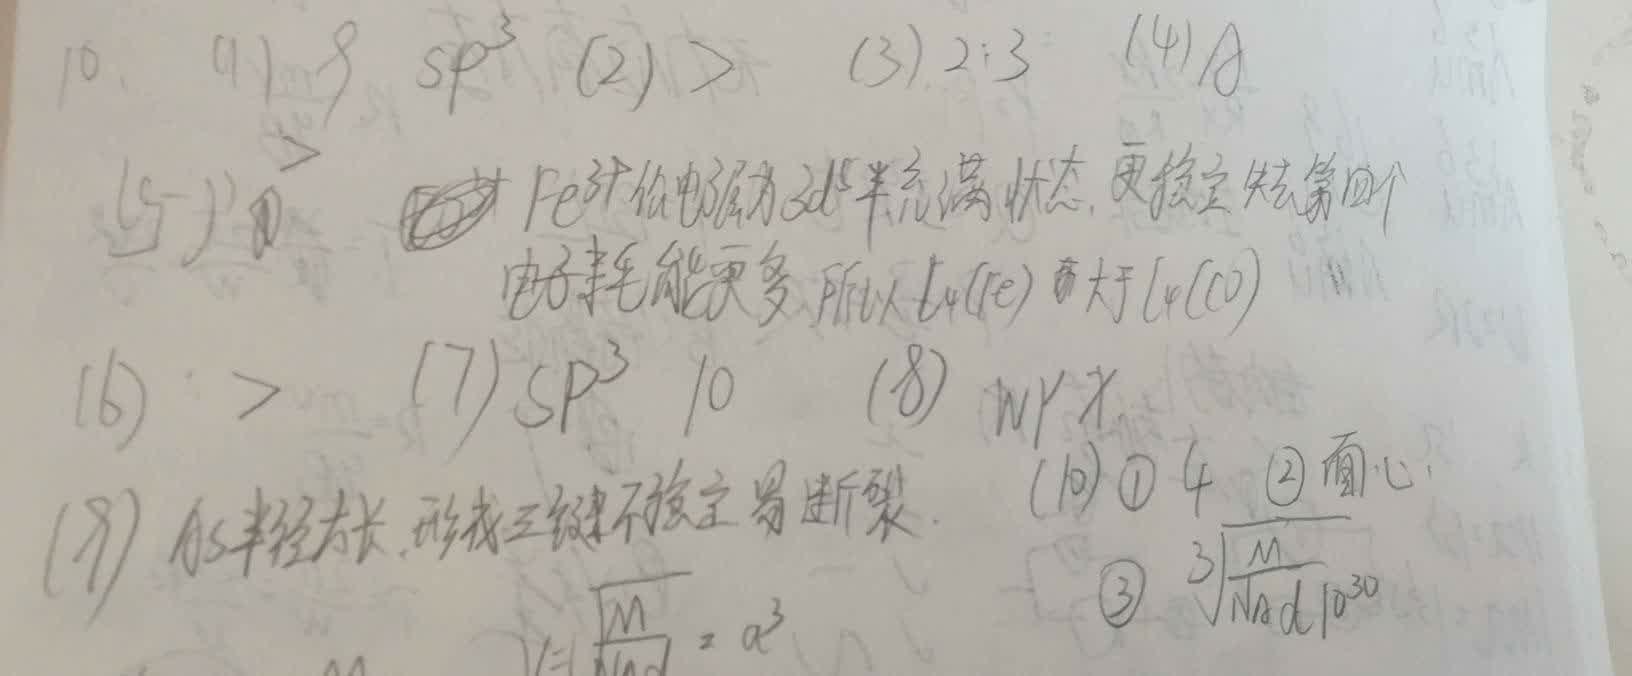 10. (1) 9 sp³ (2) > (3) 2:3 (4) A
(5) > Fe³⁺价电子为3d⁵半充满状态,更稳定失去第四个
电子耗能更多 所以I₄(Fe) 大于I₄(CO)
(6) > (7) SP³ 10 (8) WYX
(9) As半径太长,形成三键不稳定易断裂. (10) ① 4 ② 面心.
③ ³√(M/(NAd10³⁰))
√(M/(NAd)) = a³